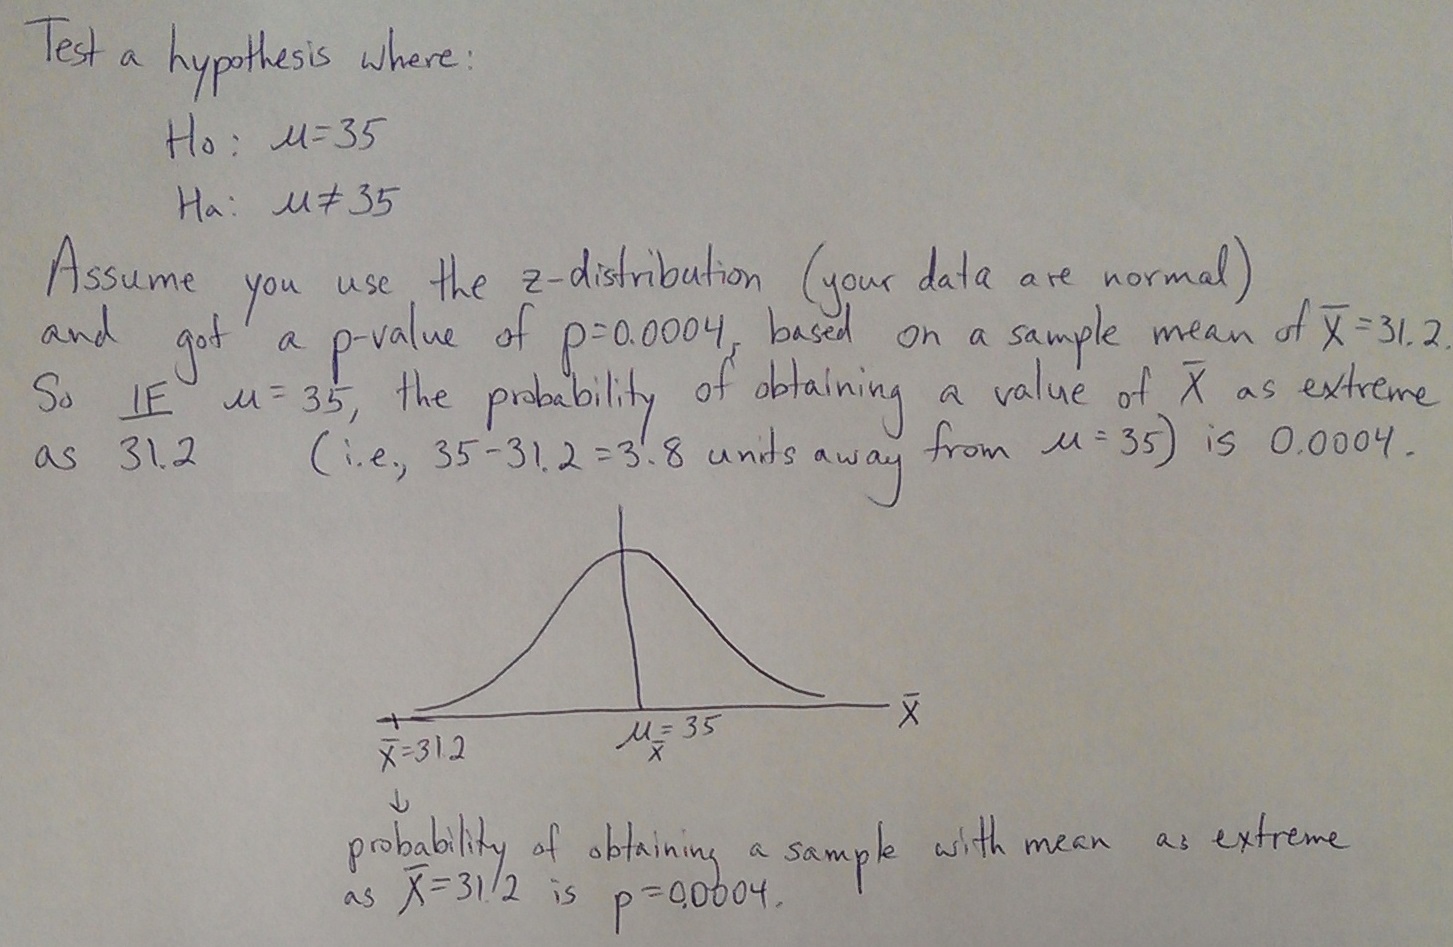 Test a hypothesis where:
Ho: μ=35
Ha: μ≠35
Assume you use the z-distribution (your data are normal)
and got a p-value of p=0.0004, based on a sample mean of X̄=31.2.
So IF μ=35, the probability of obtaining a value of X̄ as extreme
as 31.2 (i.e., 35-31.2=3.8 units away from μ=35) is 0.0004.
X̄
μx̄=35
X̄=31.2
↓
probability of obtaining a sample with mean as extreme
as X̄=31.2 is p=0.0004.